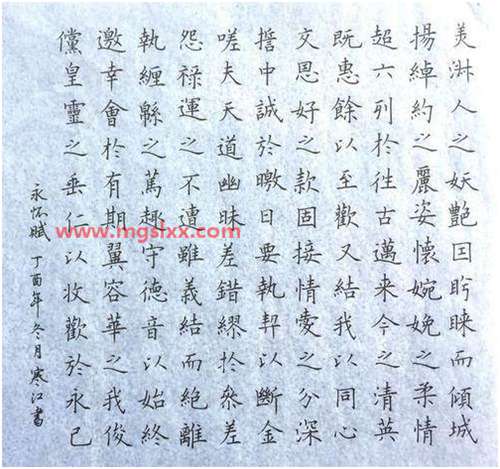 美淋人之妖艷囙盻睞而傾城
揚綽約之麗姿懷婉娩之柔情
超六列於往古邁來今之清英
既惠餘以至歡又結我以同心
文恩好之款固接情愛之分深
擔中誠於曒日要執契以斷金
嗟夫天道幽昧差錯繆於參差
怨祿運之不遭雖義結而絕離
執纏緜之篤趣守德音以始終
邀幸會於有期翼容華之我俊
儻皇靈之垂仁以收歡於永已
永懷賦 丁酉年冬月寒江書
www.mgslxx.com